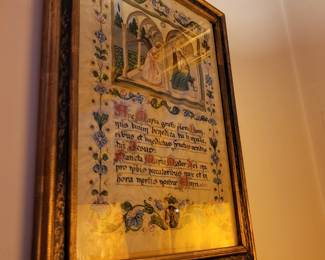 Ave Maria gratia plena Domi
nus tecum benedicta tu in mulie
ribus et benedictus fructus ventris
tui Jesus:
Sancta Maria Mater Dei ora
pro nobis peccatoribus nunc et in
hora mortis nostrae Amen